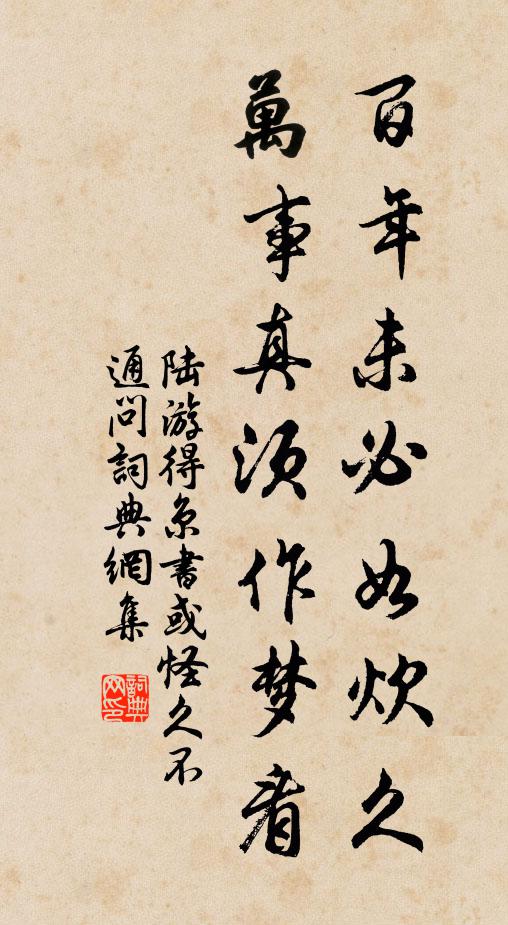 百年未必如炊久
萬事真須作梦看
陆游得京書或怪久不
通問詞典網集
詞典
网印